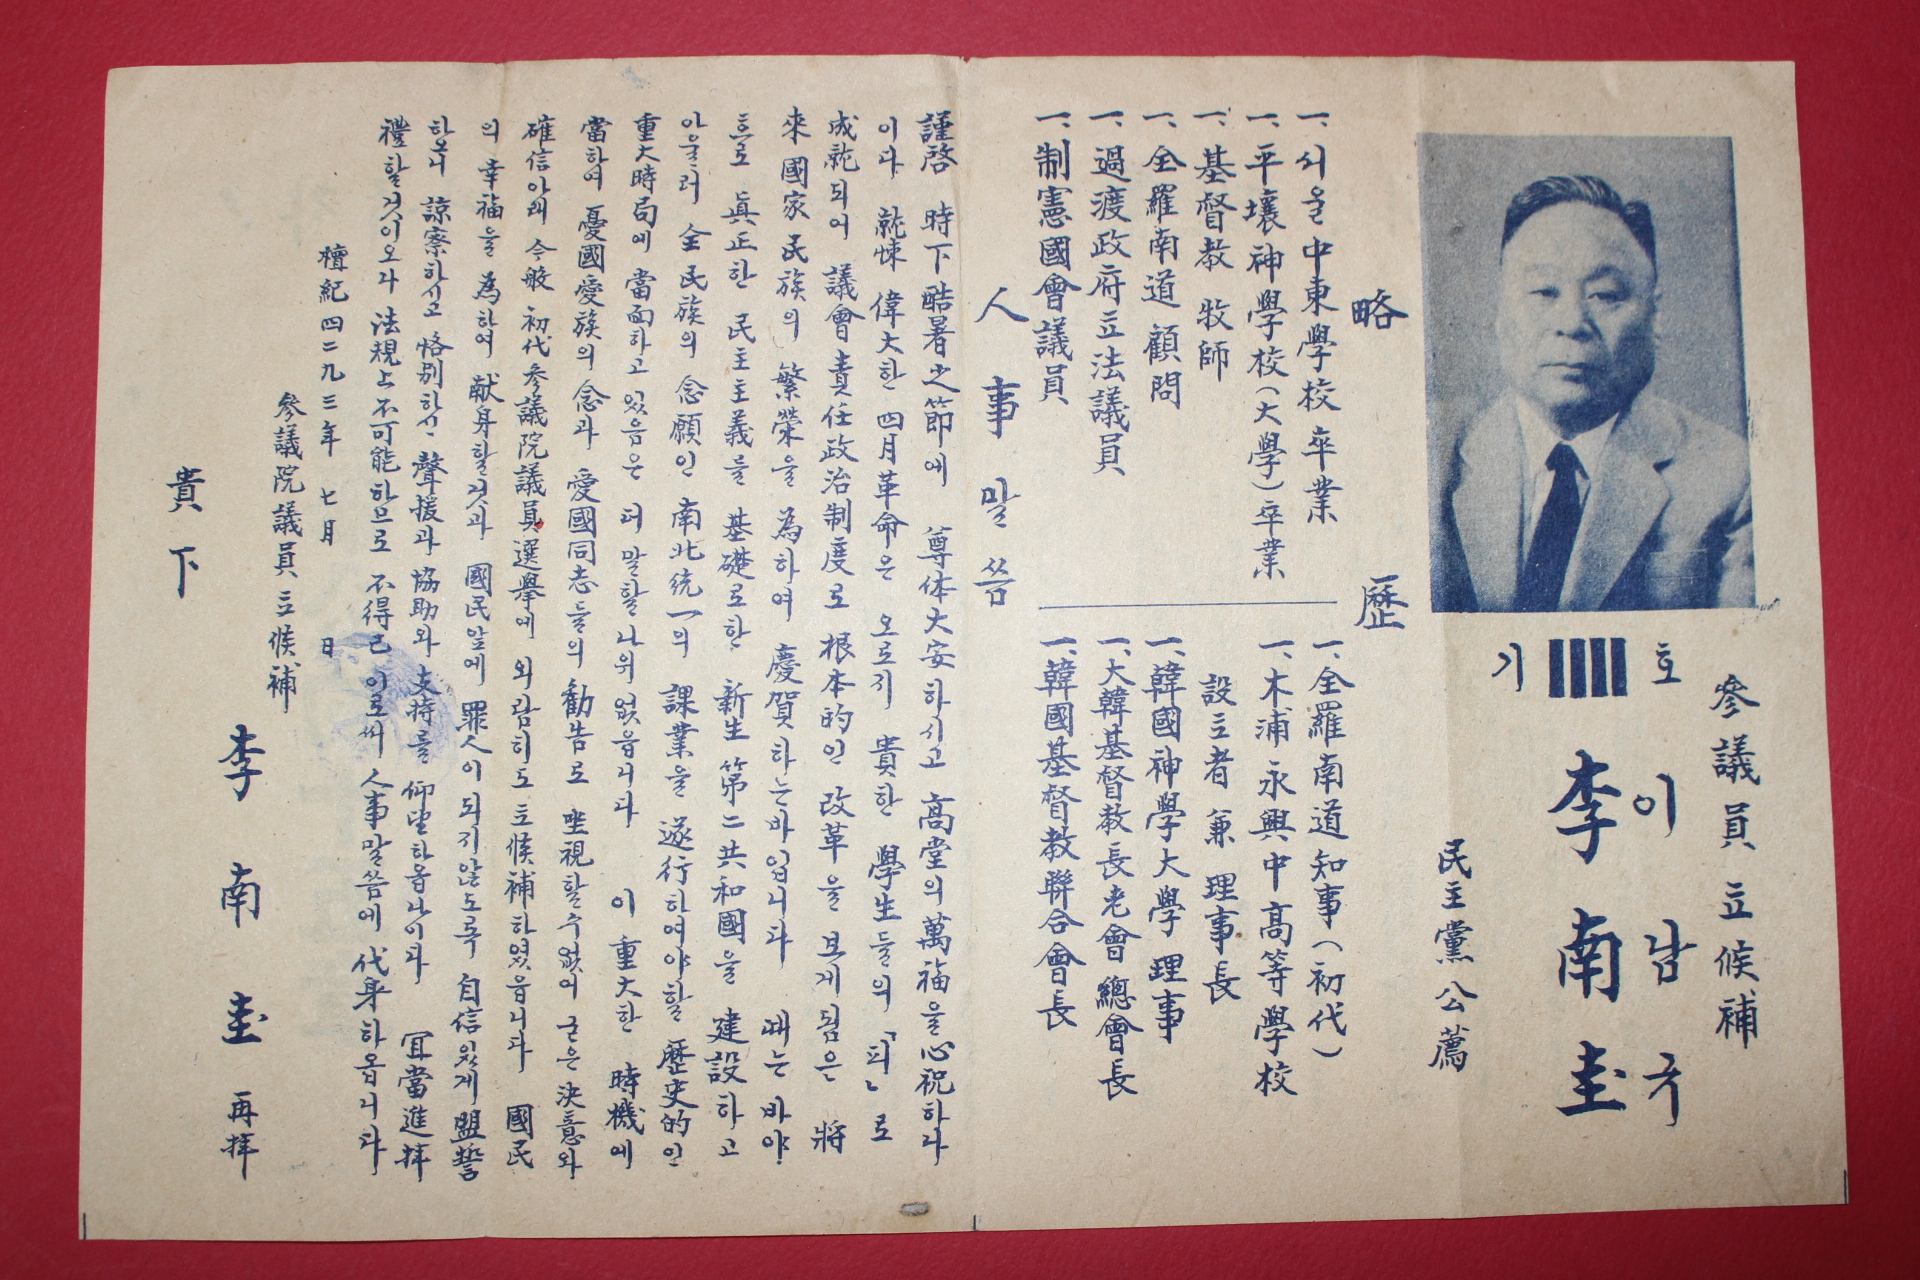 參議員 立候補
기 호
이남규
李南圭
民主黨公薦
略歷
一、서울中東學校卒業
一、平壤神學校(大學)卒業
一、基督教 牧師
一、全羅南道 顧問
一、過渡政府立法議員
一、制憲國會議員
一、全羅南道知事(初代)
一、木浦永興中高等學校
設立者 兼 理事長
一、韓國神學大學 理事
一、大韓基督教長老會總會長
一、韓國基督教聯合會長
人事말씀
謹啓 時下酷暑之節에 尊体大安하시고 高堂의 萬福을心祝하나
이다 就悚 偉大한 四月革命은 오로지 貴한 學生들의「피」로
成就되어 議會責任政治制度로 根本的인 改革을 보게됨은 將
來國家民族의 繁榮을 為하여 慶賀하는바입니다 때는 바야
흐로 眞正한 民主主義를 基礎로한 新生 第二共和國을 建設하고
아울러 全民族의 念願인 南北統一의 課業을 遂行하여야할 歷史的인
重大時局에 當面하고 있음은 더 말할나위없읍니다 이 重大한 時機에
當하여 憂國愛族의 念과 愛國同志들의 勸告로 坐視할수없어 굳은決意와
確信아래 今般 初代參議院議員選擧에 외람히도 立候補하였읍니다 國民
의 幸福을 為하여 献身할것과 國民앞에 罪人이되지않도록 自信있게盟誓
하오니 諒察하시고 恪別하신 聲援과 協助와 支持를 仰望하옵나이다 宜當進拜
禮할것이오나 法規上不可能하므로 不得已 이로써 人事말씀에 代身하옵니다
檀紀四二九三年 七月 日
參議院議員 立候補
李南圭 再拜
貴下